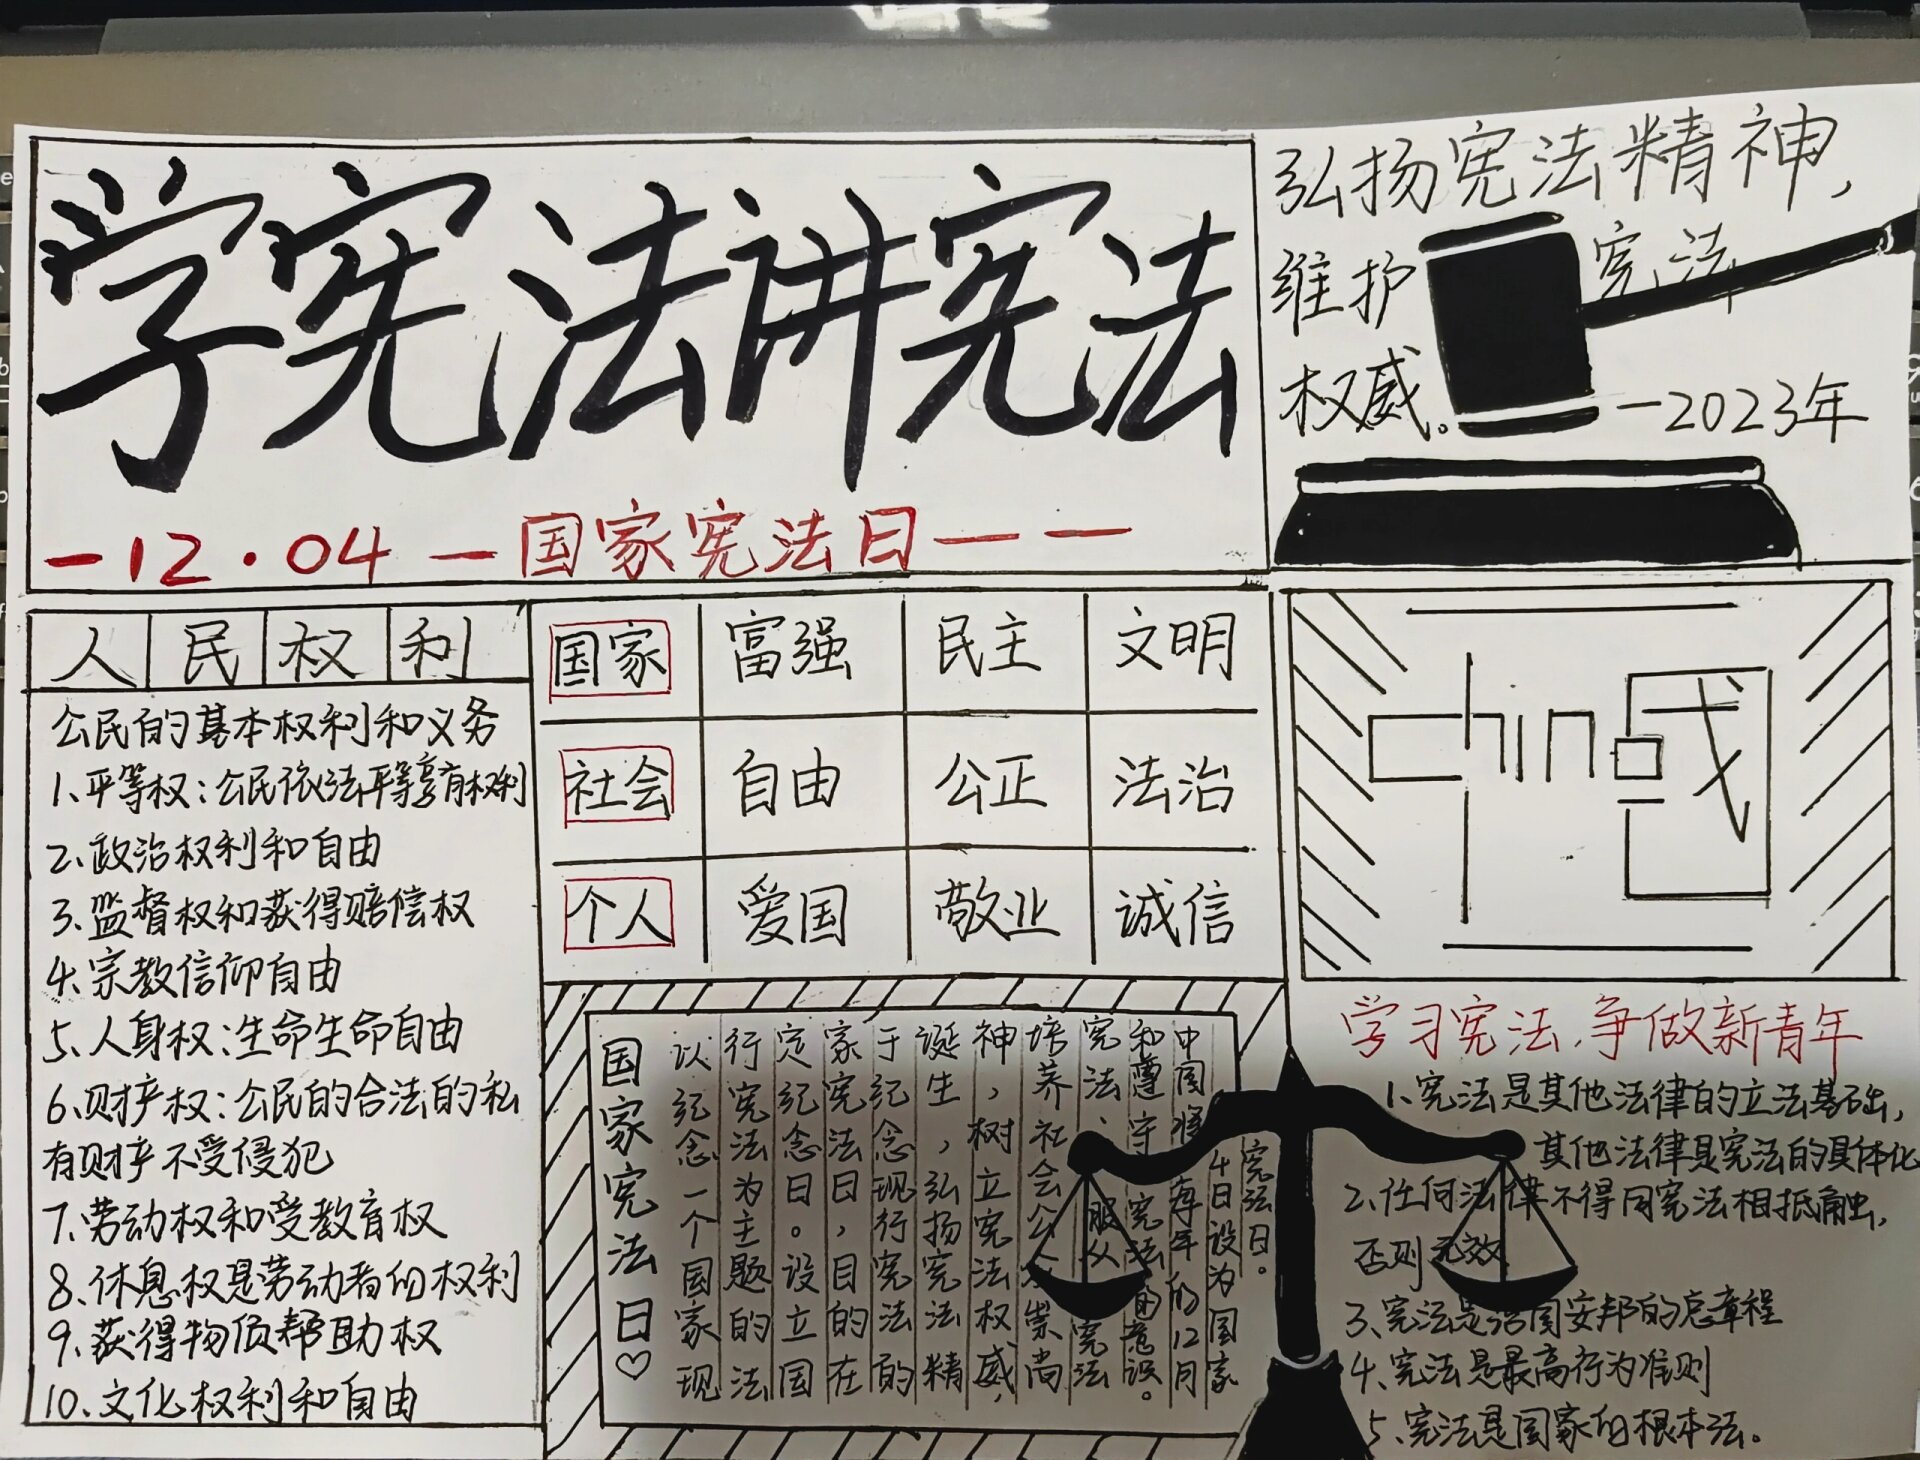 学宪法讲宪法
-12·04-国家宪法日——
弘扬宪法精神，
维护宪法
权威。
—2023年
人民权利
公民的基本权利和义务
1、平等权：公民依法平等享有权利
2、政治权利和自由
3、监督权和获得赔偿权
4、宗教信仰自由
5、人身权：生命生命自由
6、财产权：公民的合法的私
有财产不受侵犯
7、劳动权和受教育权
8、休息权是劳动者的权利
9、获得物质帮助权
10、文化权利和自由
国家 富强 民主 文明
社会 自由 公正 法治
个人 爱国 敬业 诚信
china
国家宪法日♡
以纪念一个国家现
行宪法为主题的法
定纪念日。设立国
家宪法日，目的在
于纪念现行宪法的
诞生，弘扬宪法精
神，树立宪法权威，
培养社会公众崇尚
宪法、服从宪法
和遵守宪法的意识。
中国将每年的12月
4日设为国家
宪法日。
学习宪法，争做新青年
1、宪法是其他法律的立法基础，
其他法律是宪法的具体化
2、任何法律不得同宪法相抵触，
否则无效
3、宪法是治国安邦的总章程
4、宪法是最高行为准则
5、宪法是国家的根本法。